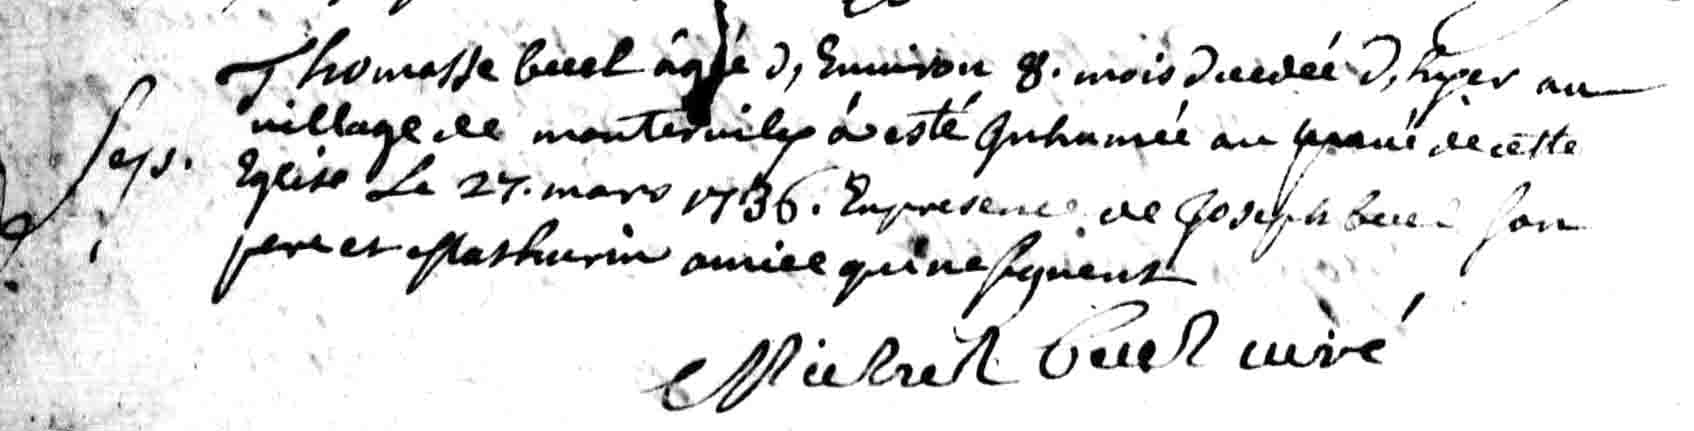 Thomasse buel âgée d, Environ 8. mois decedée d, hyer au
Seps. village de monterville à esté Inhumée au pavé de cette
Eglise Le 27. mars 1736. En presence de Joseph buel son
pere et Mathurin amice qui ne signent
Michel buel curé